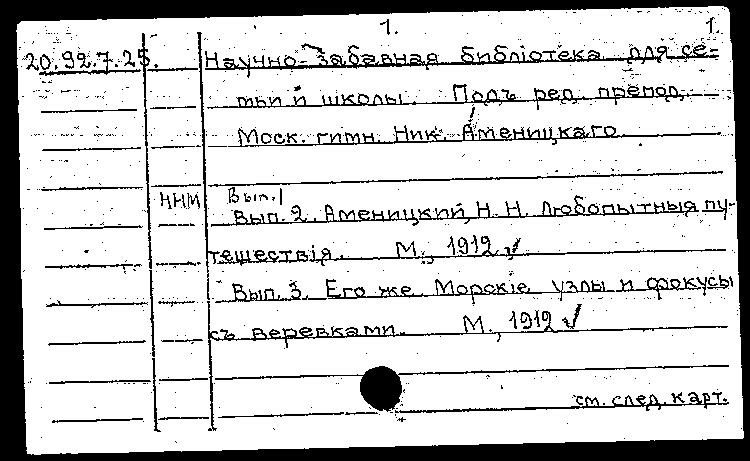 1. 1.
20.92.7.25. Научно-забавная библіотека для се=
мьи и школы. Подъ ред. препод.
Моск. гимн. Ник. Аменицкаго.
ННМ Вып.1
Вып. 2. Аменицкий, Н. Н. Любопытныя пу-
тешествія. М., 1912 ✓
Вып. 3. Его же. Морскіе узлы и фокусы
съ веревками. М., 1912 ✓
см. след. карт.